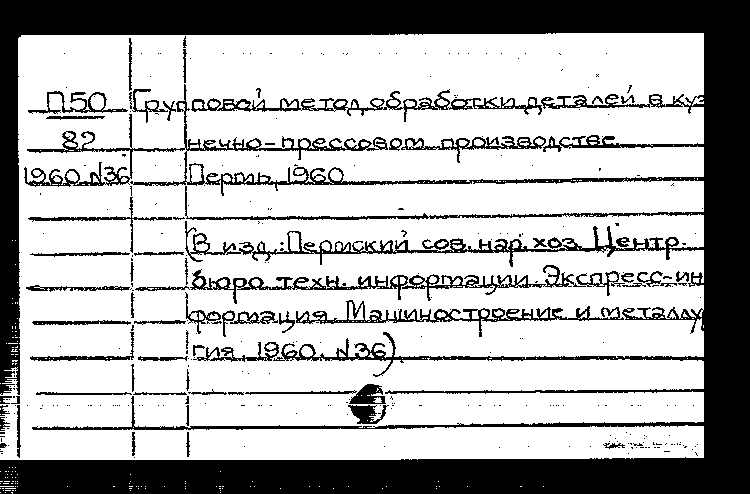 П50 Групповой метод обработки деталей в куз
82 нечно-прессовом производстве.
1960 №36 Пермь, 1960
(В изд.: Пермский сов. нар. хоз. Центр.
бюро техн. информации. Экспресс-ин
формация. Машиностроение и металлур
гия, 1960. №36)